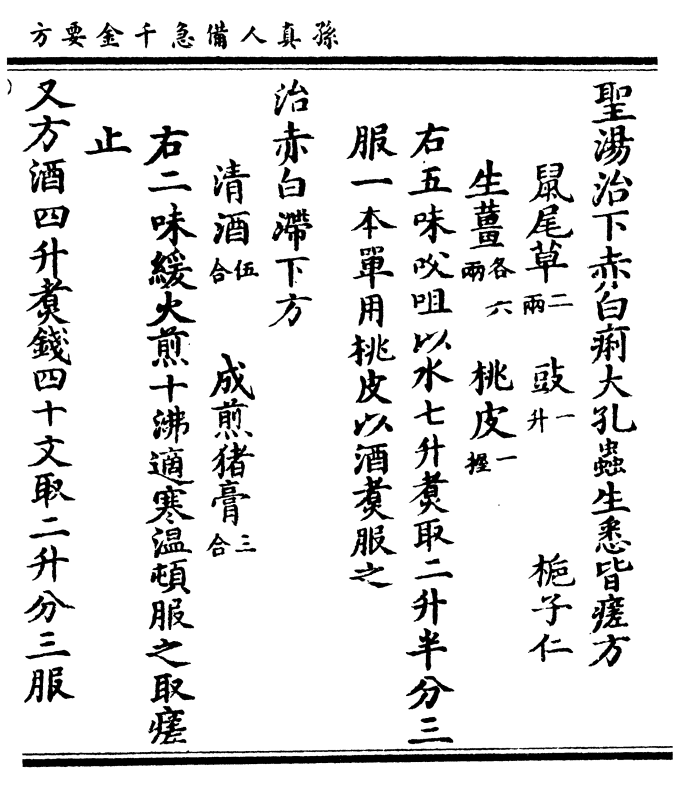 孫真人備急千金要方
聖湯治下赤白痢大孔蟲生悉皆瘥方
鼠尾草二兩 豉一升 梔子仁
生薑各六兩 桃皮一握
右五味㕮咀以水七升煑取二升半分三
服一本單用桃皮以酒煑服之
治赤白滯下方
清酒伍合 成煎猪膏三合
右二味緩火煎十沸適寒温頓服之取瘥
止
又方酒四升煑錢四十文取二升分三服